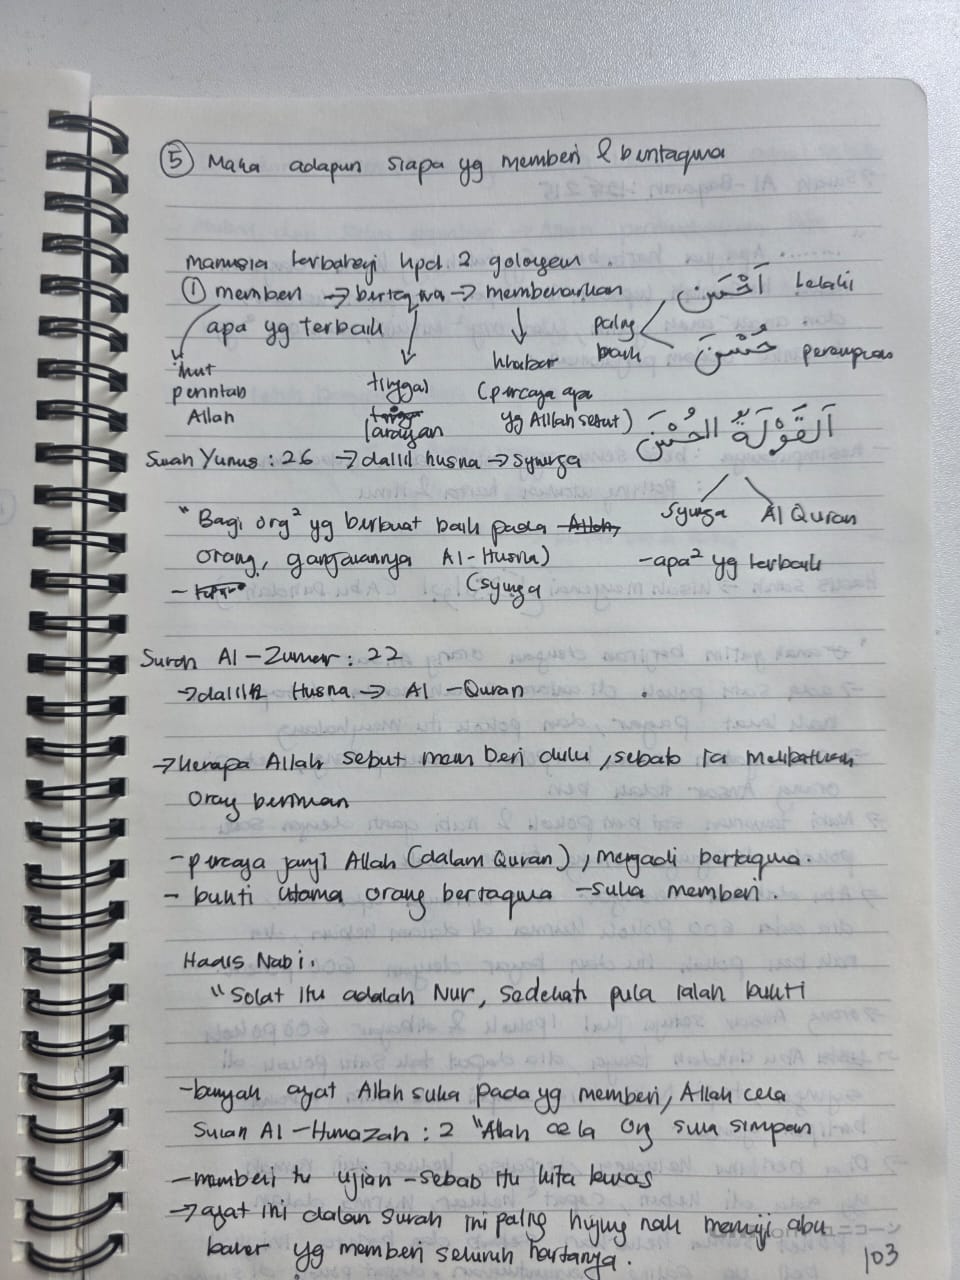 ⑤ Maka adapun siapa yg memberi & bertaqwa
manusia terbahagi kpd 2 golongan.
① memberi → bertaqwa → membenarkan
apa² yg terbaik
ikut
perintah
Allah
tinggal
larangan
khabar
(percaya apa
yg Allah sebut)
paling
baik
أَحْسَن lelaki
حُسْنَى perempuan
اَلقَوْلَةُ الحُسْنَى
Syurga
Al Quran
- apa² yg terbaik
Surah Yunus : 26 → dalil husna → Syurga
"Bagi org² yg berbuat baik pada Allah,
orang, ganjarannya Al-Husna)
(syurga
-
Surah Al-Zumar : 22
→ dalil Husna → Al-Quran
→ kenapa Allah sebut memberi dulu, sebab ia melibatkan
orang beriman
- percaya janji Allah (dalam Quran), menjadi bertaqwa.
- bukti utama orang bertaqwa - suka memberi.
Hadis Nabi.
"Solat itu adalah Nur, Sedekah pula ialah bukti
- banyak ayat Allah suka pada yg memberi, Allah cela
Surah Al-Humazah : 2 "Allah cela Org suka simpan
- memberi tu ujian - sebab itu kita kawas
→ ayat ini dalam surah ini paling hujung nak memuji abu
baker yg memberi seluruh hartanya.
103